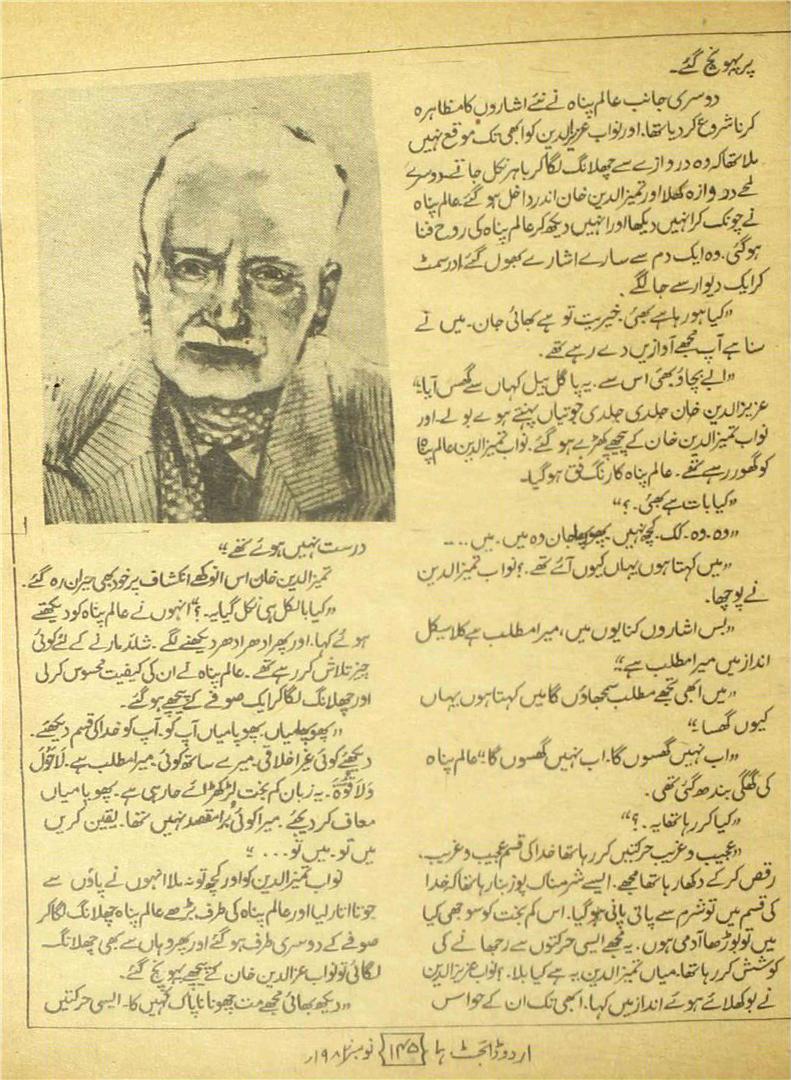 پر پہونچ گئے۔
دوسری جانب عالم پناہ نے نئے اشاروں کا مظاہرہ
کرنا شروع کر دیا تھا۔ اور نواب عزیزالدین کو ابھی تک موقع نہیں
ملا تھا کہ وہ دروازے سے چھلانگ لگا کر باہر نکل جاتے۔ دوسرے
لمحے دروازہ کھلا اور تمیزالدین خان اندر داخل ہو گئے۔ عالم پناہ
نے چونک کر انہیں دیکھا اور انہیں دیکھ کر عالم پناہ کی روح فنا
ہو گئی۔ وہ ایک دم سے سارے اشارے بھول گئے اور سمٹ
کر ایک دیوار سے جا لگے
"کیا ہو رہا ہے بھئی۔ خیریت تو ہے بھائی جان۔ میں نے
سنا ہے آپ مجھے آوازیں دے رہے تھے۔
"ابے بچاؤ بھئی اس سے۔ یہ پاگل بیل کہاں سے گھس آیا"
عزیزالدین خان جلدی جلدی جوتیاں پہنتے ہوے بولے۔ اور
نواب تمیزالدین خان کے پیچھے کھڑے ہو گئے۔ نواب تمیزالدین عالم پناہ
کو گھور رہے تھے۔ عالم پناہ کا رنگ فق ہو گیا۔
"کیا بات ہے بھئی۔؟"
"وہ۔ وہ۔ کک۔ کچھ نہیں۔ پھوپھا جان وہ میں۔ میں....
"میں کہتا ہوں یہاں کیوں آئے تھے۔؟ نواب تمیزالدین
نے پوچھا۔
"بس اشاروں کنایوں میں، میرا مطلب ہے کلاسیکل
انداز میں میرا مطلب ہے"
"میں ابھی تجھے مطلب سمجھاؤں گا میں کہتا ہوں یہاں
کیوں گھسا"
"اب نہیں گھسوں گا۔ اب نہیں گھسوں گا" عالم پناہ
کی گھگی بندھ گئی تھی۔
"کیا کر رہا تھا یہ۔؟"
"عجیب و غریب حرکتیں کر رہا تھا خدا کی قسم عجیب و غریب۔
رقص کر کے دکھا رہا تھا مجھے۔ ایسے شرمناک پوز بنا رہا تھا کہ خدا
کی قسم میں تو شرم سے پانی پانی ہو گیا۔ اس کم بخت کو سوجھی کیا
میں تو بوڑھا آدمی ہوں۔ یہ مجھے ایسی حرکتوں سے رجھانے کی
کوشش کر رہا تھا۔ میاں تمیزالدین یہ ہے کیا بلا۔؟ نواب عزیزالدین
نے بوکھلائے ہوئے انداز میں کہا۔ ابھی تک ان کے حواس
درست نہیں ہوئے تھے"
تمیزالدین خان اس انوکھے انکشاف پر خود بھی حیران رہ گئے۔
"کیا بالکل ہی نکل گیا یہ۔؟" انہوں نے عالم پناہ کو دیکھتے
ہوئے کہا۔ اور پھر ادھر ادھر دیکھنے لگے۔ شاید مارنے کے لئے کوئی
چیز تلاش کر رہے تھے۔ عالم پناہ نے ان کی کیفیت محسوس کر لی
اور چھلانگ لگا کر ایک صوفے کے پیچھے ہو گئے۔
"پھوپھا میاں پھوپا میاں آپ کو۔ آپ کو خدا کی قسم دیکھئے۔
دیکھئے کوئی غیر اخلاقی۔ میرے ساتھ کوئی۔ میرا مطلب ہے۔ لَاحَوْلُ
وَلَاقُوَّۃ۔ یہ زبان کم بخت لڑکھڑائے جا رہی ہے۔ پھوپا میاں
معاف کر دیجئے۔ میرا کوئی بُرا مقصد نہیں تھا۔ یقین کریں
میں تو۔ میں تو... "
نواب تمیزالدین کو اور کچھ تو نہ ملا انہوں نے پاؤں سے
جوتا اتار لیا اور عالم پناہ کی طرف بڑھے عالم پناہ چھلانگ لگا کر
صوفے کے دوسری طرف ہو گئے اور پھر وہاں سے بھی چھلانگ
لگائی تو نواب عزالدین خان کے پیچھے پہونچ گئے۔
"دیکھ بھائی مجھے مت چھونا ناپاک کہیں کا۔ ایسی حرکتیں
اردو ڈائجسٹ ہما {۱۴۵} نومبر ۱۹۸۰ء